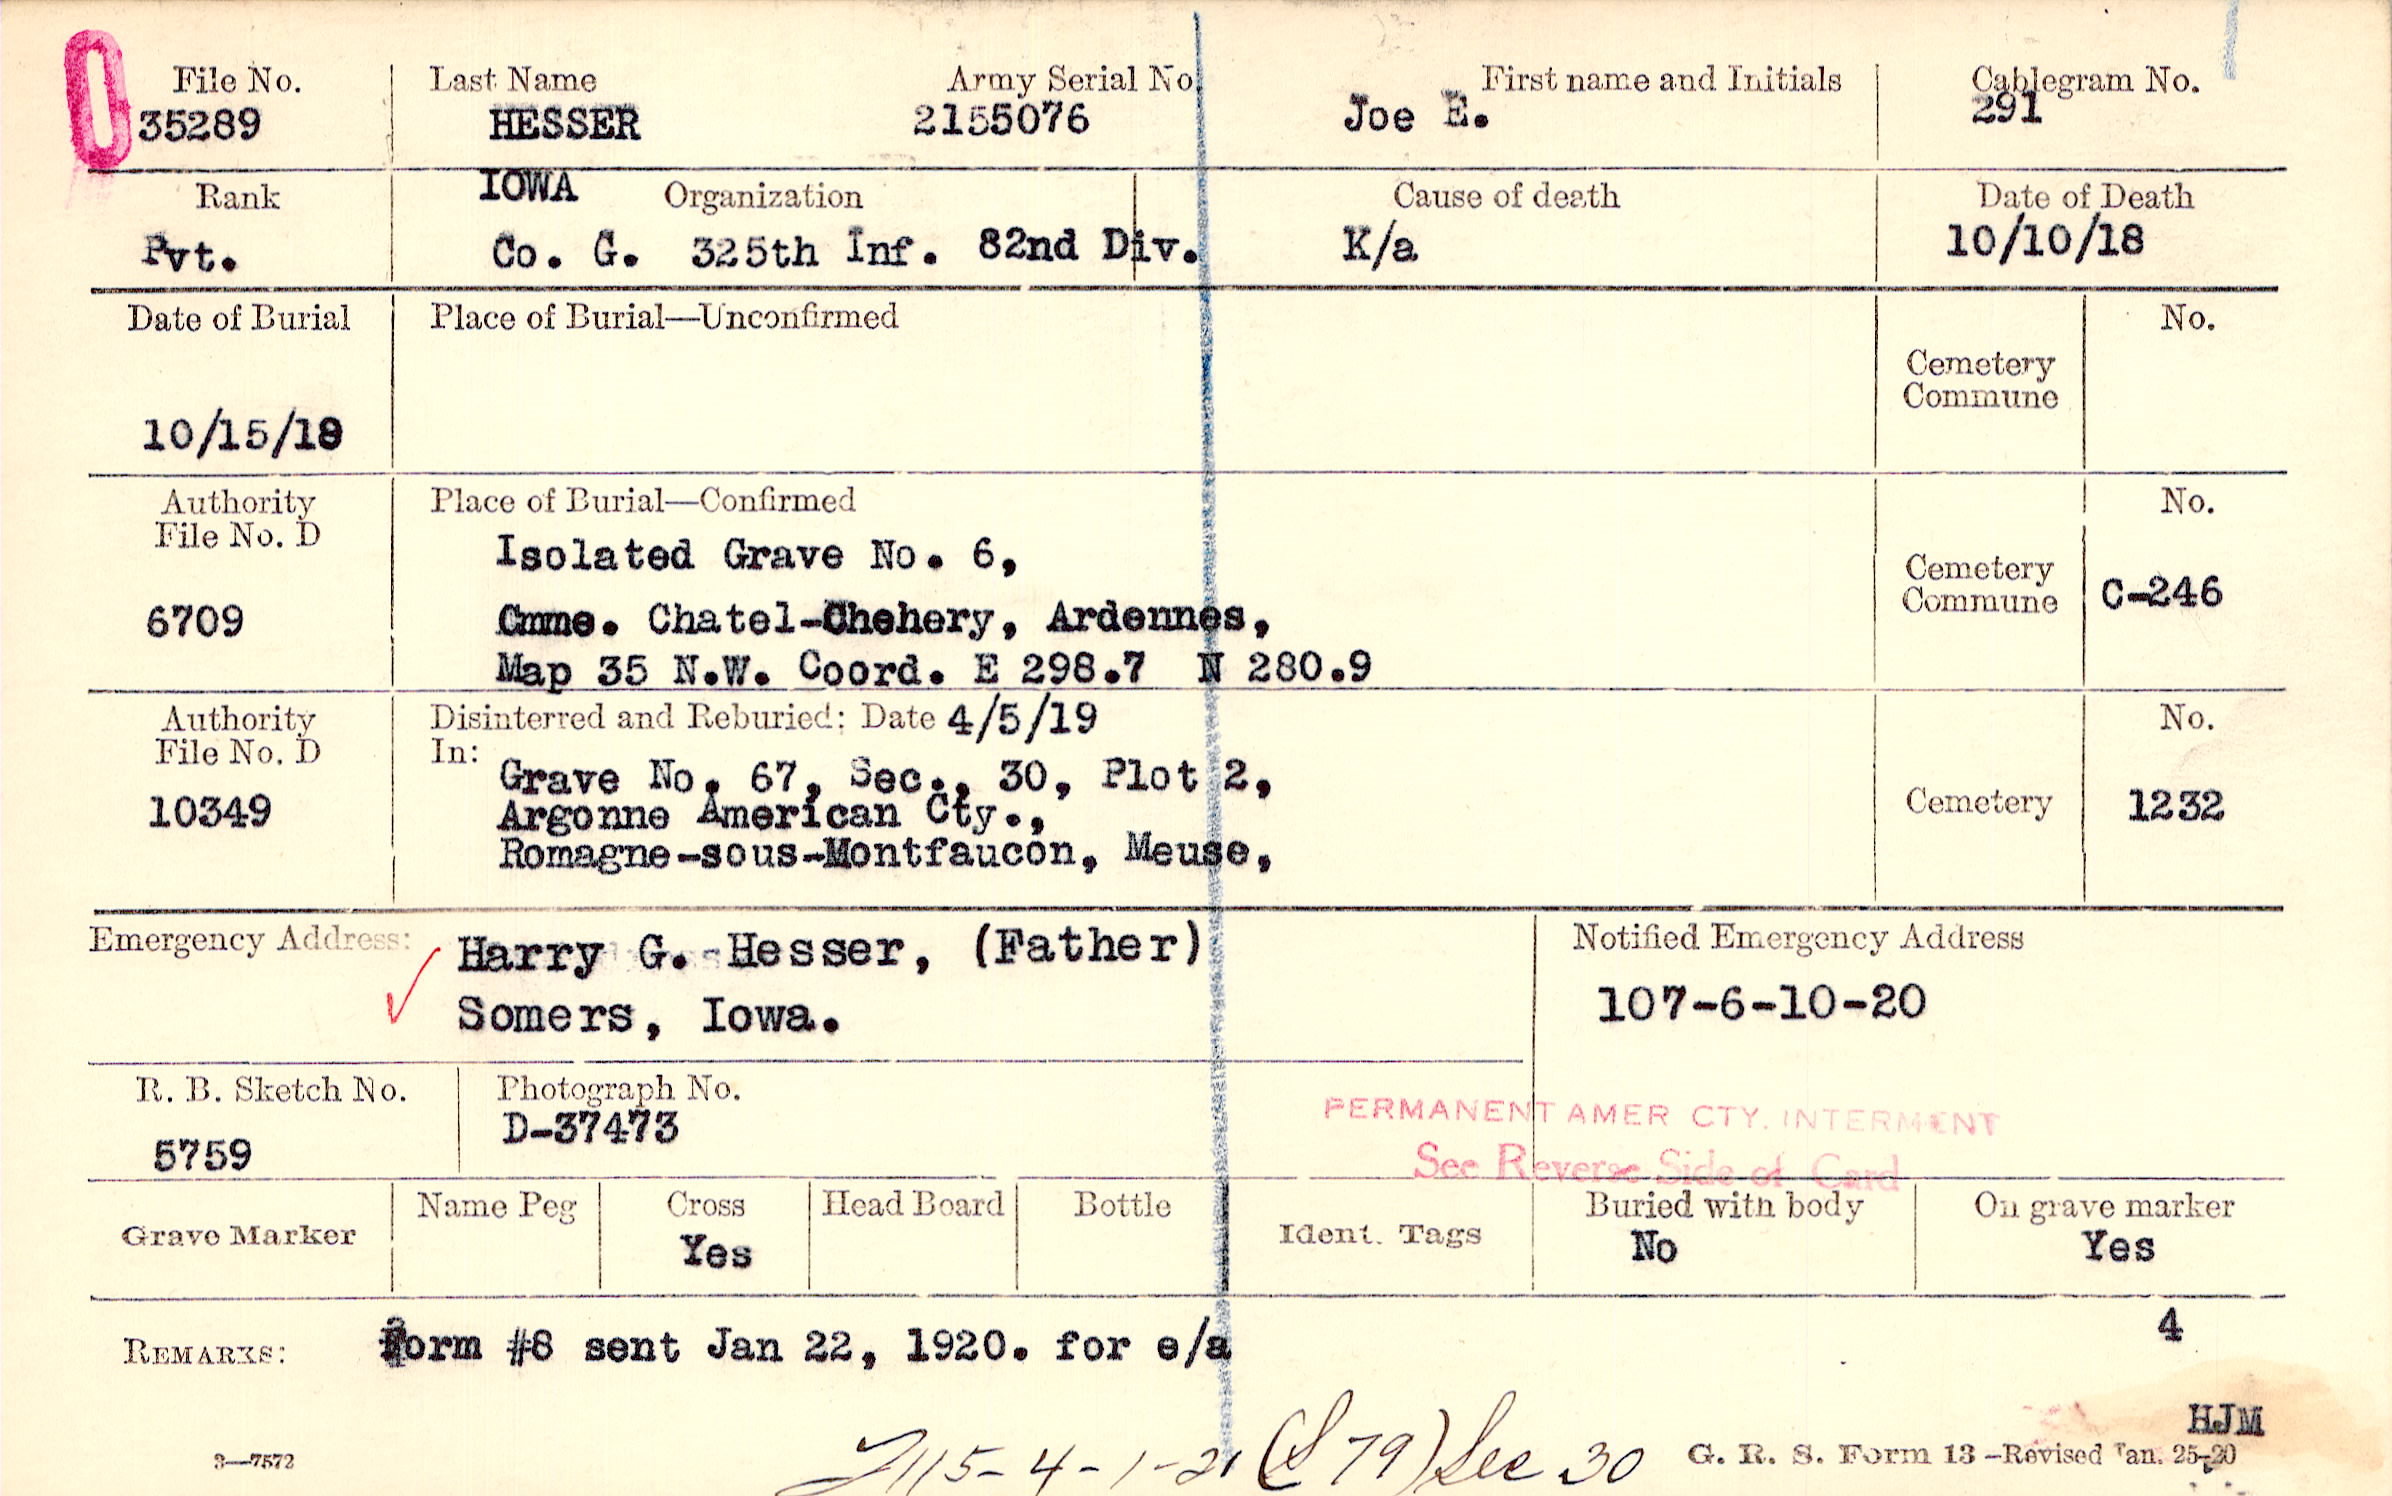 File No. Last Name Army Serial No. First name and Initials Cablegram No.
35289 HESSER 2155076 Joe E. 291
Rank IOWA Organization Cause of death Date of Death
Pvt. Co. G. 325th Inf. 82nd Div. K/a 10/10/18
Date of Burial Place of Burial—Unconfirmed No.
Cemetery
Commune
10/15/18
Authority Place of Burial—Confirmed No.
File No. D
Isolated Grave No. 6,
Cemetery
Commune C-246
6709 Cmme. Chatel-Chehery, Ardennes,
Map 35 N.W. Coord. E 298.7 N 280.9
Authority Disinterred and Reburied: Date 4/5/19 No.
File No. D In:
Grave No. 67, Sec., 30, Plot 2,
10349 Argonne American Cty., Cemetery 1232
Romagne-sous-Montfaucon, Meuse,
Emergency Address: Harry G. Hesser, (Father) Notified Emergency Address
Somers, Iowa. 107-6-10-20
R. B. Sketch No. Photograph No.
5759 D-37473
PERMANENT AMER CTY. INTERMENT
See Reverse Side of Card
Grave Marker Name Peg Cross Head Board Bottle Ident. Tags Buried with body On grave marker
Yes No Yes
4
REMARKS: Form #8 sent Jan 22, 1920. for e/a
HJM
115-4-1-21 (L 79) Sec 30
3—7572 G. R. S. Form 13-Revised Jan. 25-20